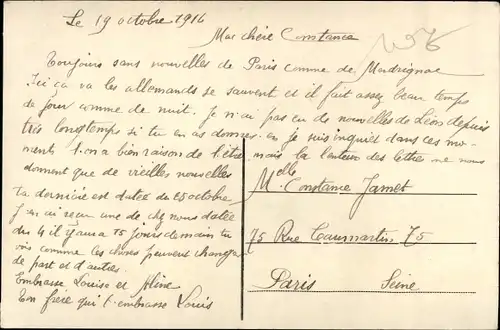 Le 19 octobre 1916
Ma chère Constance
Toujours sans nouvelles de Paris comme de Merdrignac
Ici ça va les allemands se sauvent et il fait assez beau temps
de jour comme de nuit. Je n'ai pas eu de nouvelles de Léon depuis
très longtemps si tu en as donnes-en je suis inquiet dans ces mo-
ments l'on a bien raison de l'être, mais la lenteur des lettres ne nous
donnent que de vieilles nouvelles
ta dernière est datée du octobre
J'en ai reçu une de chez nous datée
du 4 il y aura 15 jours demain tu
vois comme les choses peuvent changer
de part et d'autres.
Embrasse Louise et Aline
Ton frère qui t'embrasse Louis
Melle Constance Jamet
75 Rue Caumartin 75
Paris Seine